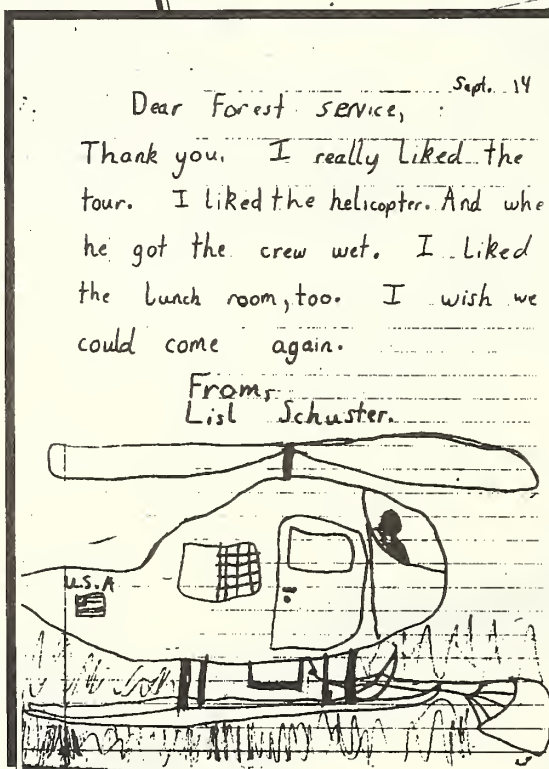 Sept. 14
Dear Forest service,
Thank you. I really liked the
tour. I liked the helicopter. And whe
he got the crew wet. I liked
the lunch room, too. I wish we
could come again.
From,
Lisl Schuster.
U.S.A